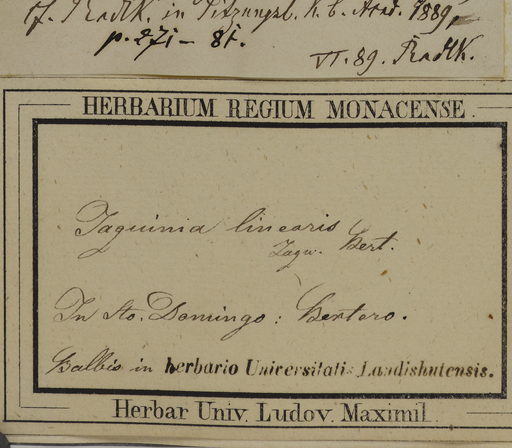 cf. Radlk. in Sitzungsb. k. b. Acad. 1889,
p. 271–81.
VI. 89. Radlk.
HERBARIUM REGIUM MONACENSE.
Jaquinia linearis
Jaqu. Bert.
In Sto. Domingo: Bertero.
Balbis in herbario Universitatis Landishutensis.
Herbar Univ. Ludov. Maximil.